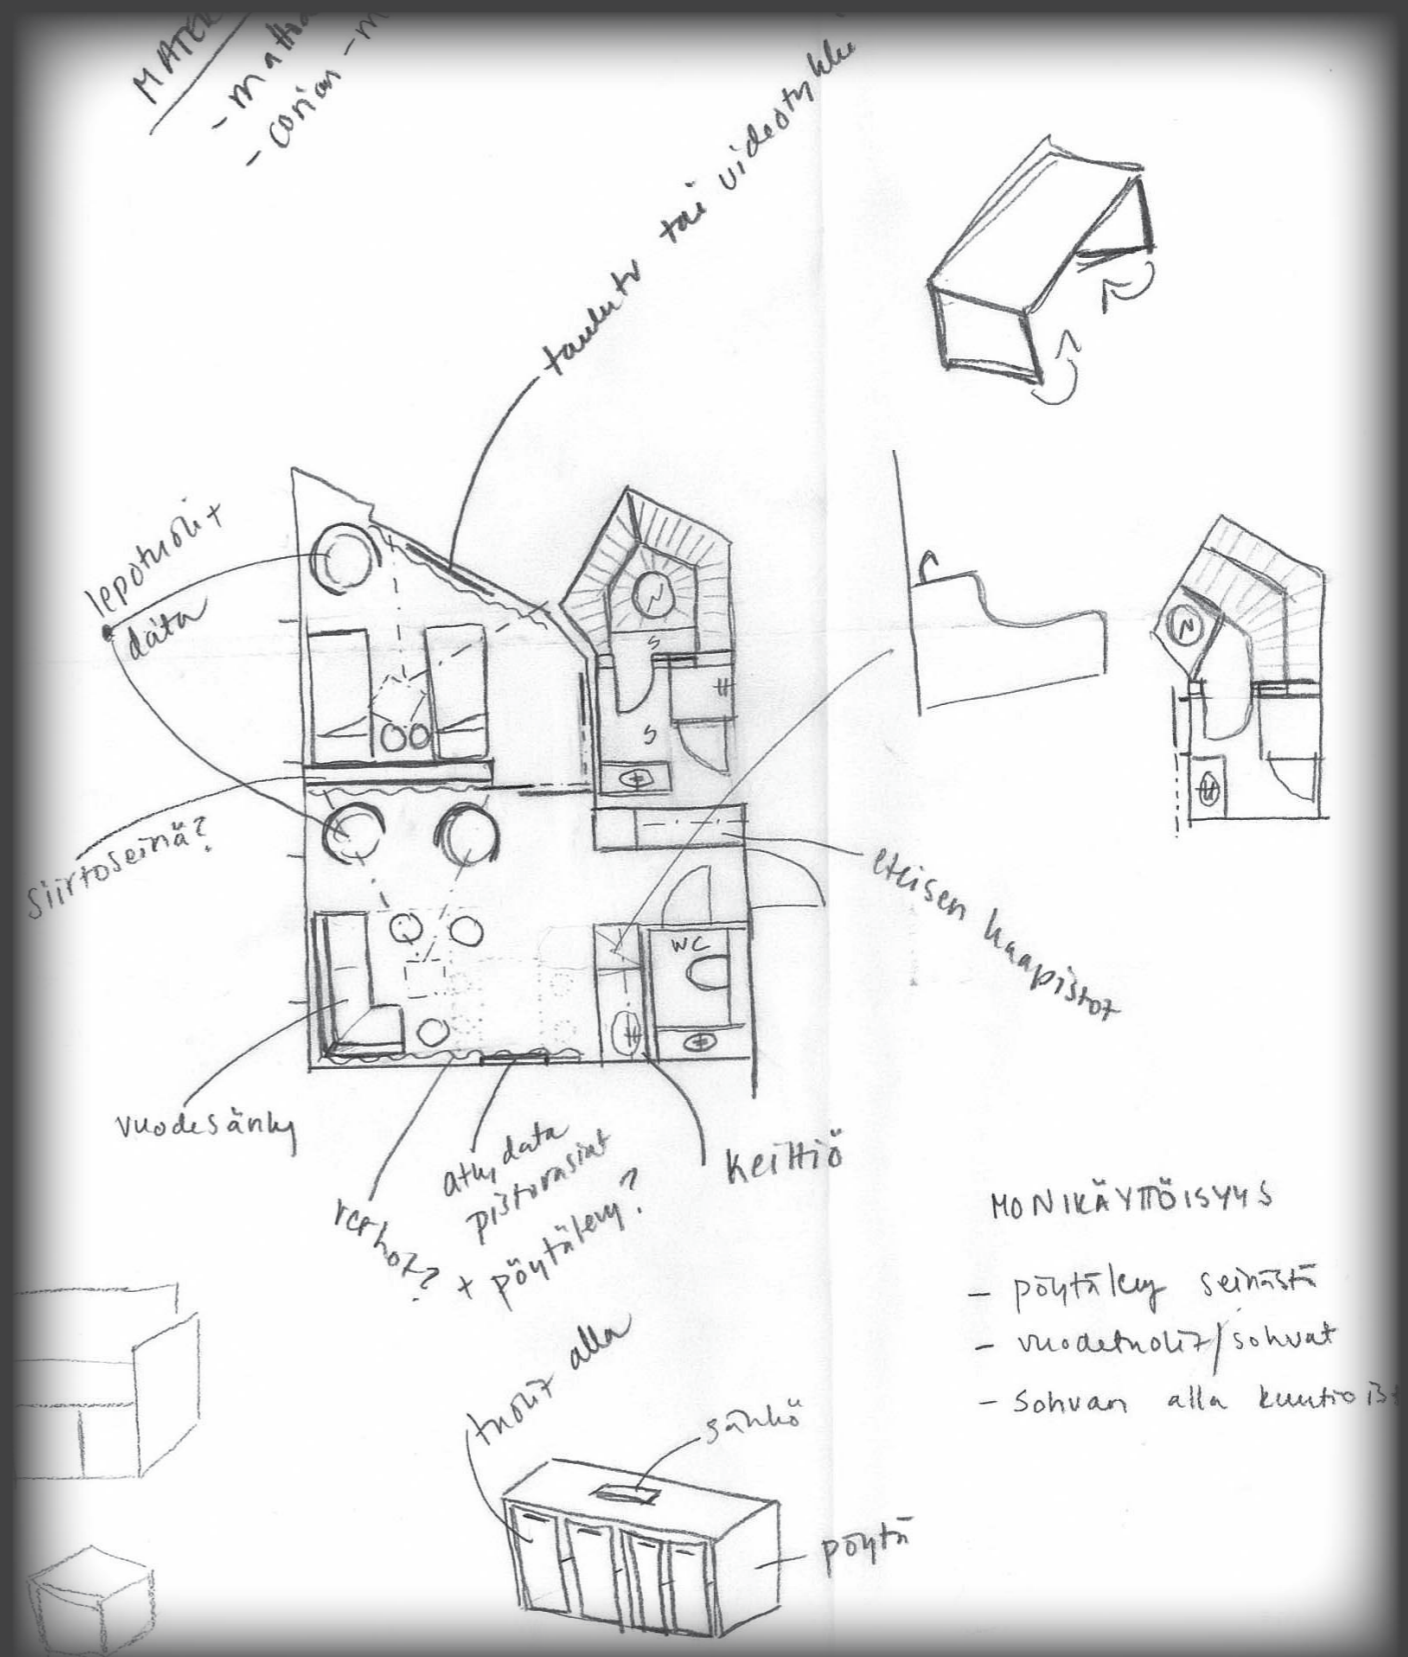 - matto
- corian - m
taulutv tai videotykki
lepotuolit
data
siirtoseinä?
S
S
WC
eteisen kaapistot
vuodesänky
verhot?
atk, data
pistorasiat
+ pöytälevy?
keittiö
MONIKÄYTTÖISYYS
- pöytälevy seinästä
- vuodetuolit/sohvat
- sohvan alla kuutiois
tuolit alla
sähkö
pöytä